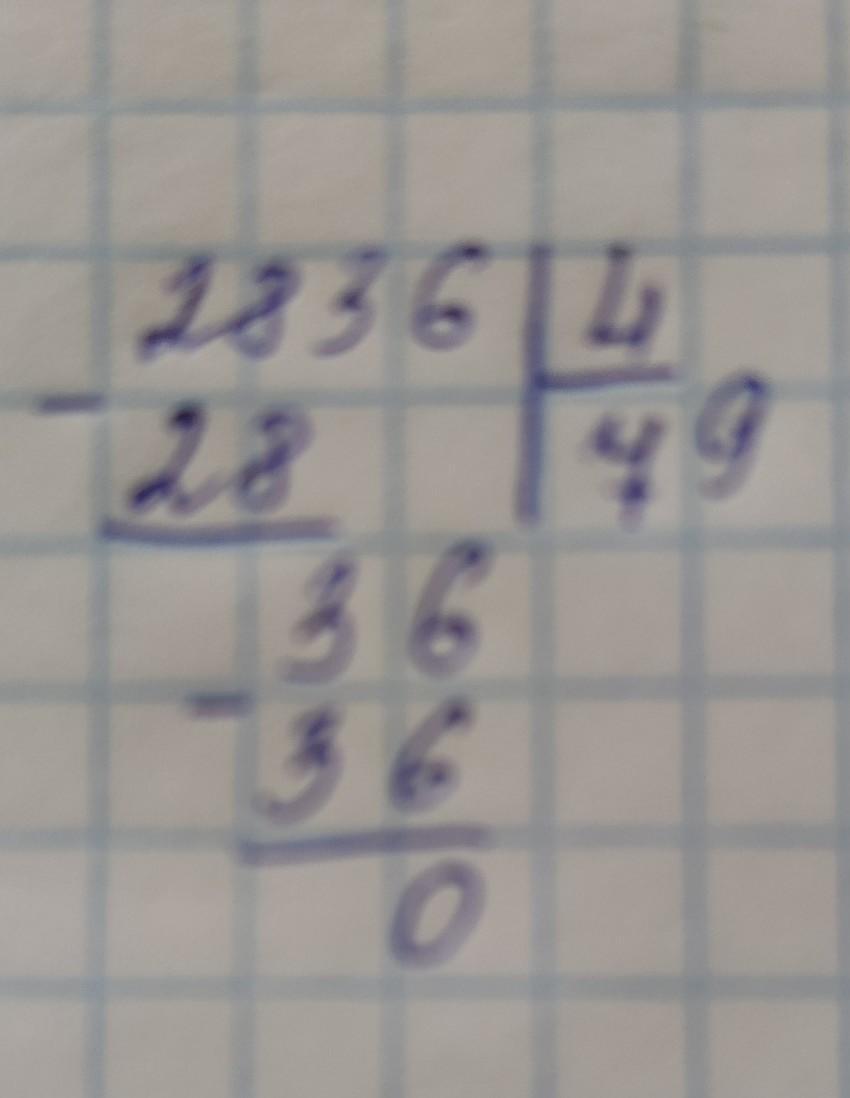 2836 4
- 28 79
36
- 36
0